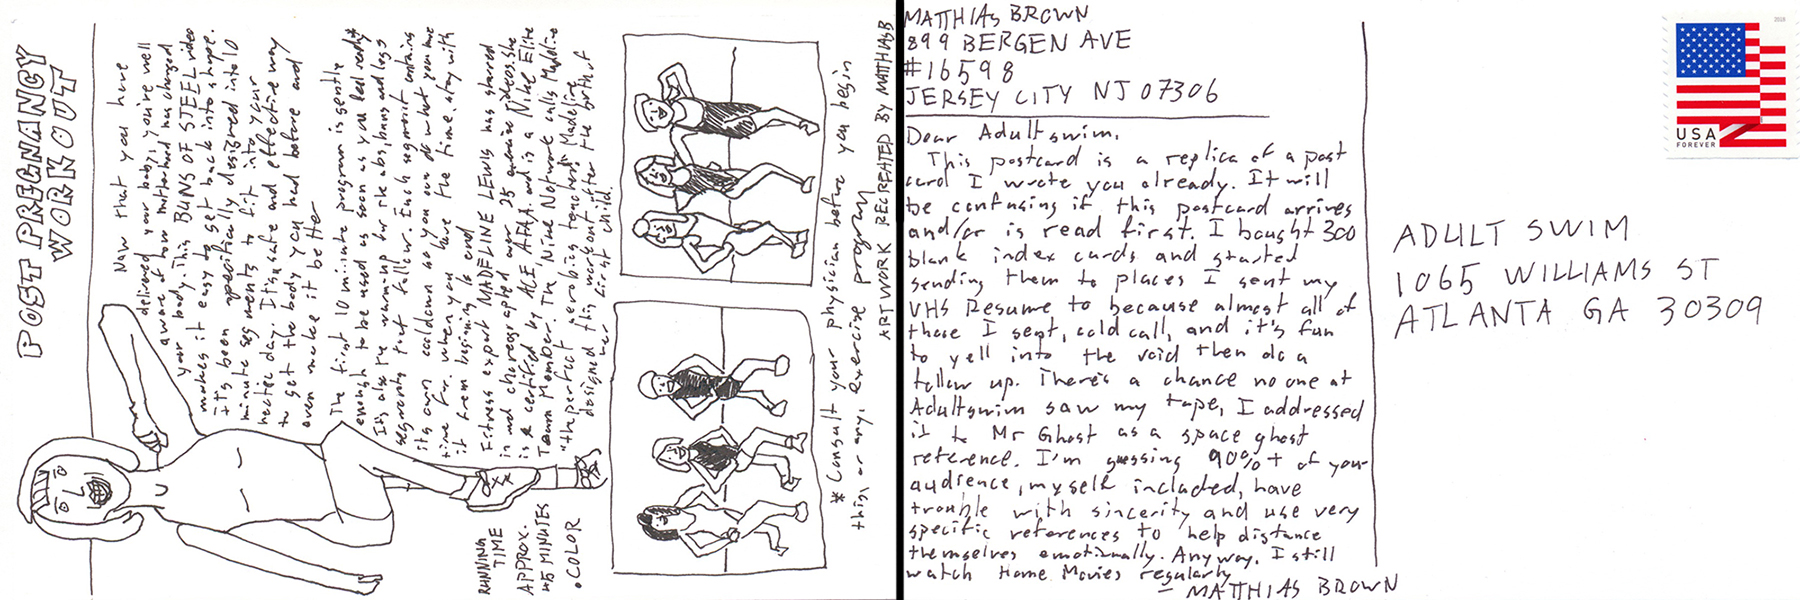 POST PREGNANCY
WORKOUT
Now that you have
delivered your baby, you're well
aware of how motherhood has changed
your body. This BUNS OF STEEL video
makes it easy to get back into shape.
It's been specifically designed into 10
minute segments to fit into your
hectic day. It's a safe and effective way
to get the body you had before and
even make it better
The first 10 minute program is gentle
enough to be used as soon as you feel ready*
It's also the warm-up for the abs, buns and legs
segments that follow. Each segment contains
its own cooldown so you can do what you have
time for. When you have the time, stay with
it from beginning to end
Fitness expert MADELINE LEWIS has starred
in and choreographed over 25 exercise videos. She
is certified by ACE AFAA and is a Nike Elite
Team Member. The Nine Network calls Madeline
"the perfect aerobics teacher" Madeline
designed this workout after the birth of
her first child.
RUNNING
TIME
APPROX.
45 MINUTES
• COLOR
* Consult your physician before you begin
this, or any, exercise program
ARTWORK RECREATED BY MATTHIAS B
MATTHIAS BROWN
899 BERGEN AVE
#16598
JERSEY CITY NJ 07306
Dear Adultswim,
This postcard is a replica of a post
card I wrote you already. It will
be confusing if this postcard arrives
and/or is read first. I bought 300
blank index cards and started
sending them to places I sent my
VHS Resume to because almost all of
those I sent, cold call, and it's fun
to yell into the void then do a
follow up. There's a chance no one at
Adultswim saw my tape, I addressed
it to Mr Ghost as a space ghost
reference. I'm guessing 90%+ of your
audience, myself included, have
trouble with sincerity and use very
specific references to help distance
themselves emotionally. Anyway. I still
watch Home Movies regularly
— MATTHIAS BROWN
2018
USA
FOREVER
ADULT SWIM
1065 WILLIAMS ST
ATLANTA GA 30309